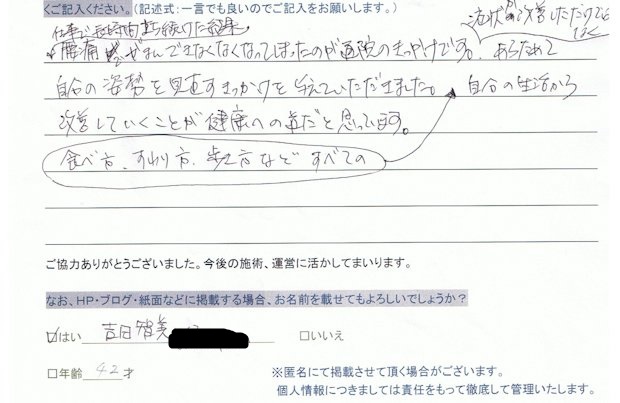 くご記入ください。(記述式：一言でも良いのでご記入をお願いします。)
症状が改善しただけでなく
仕事で長時間立ち続けた結果
腰痛がまんできなくなくなってしまったのが通院のきっかけです。あらためて
自分の姿勢を見直すきっかけを与えていただきました。自分の生活から
改善していくことが健康への道だと思っています。
食べ方、すわり方、歩き方など すべての
ご協力ありがとうございました。今後の施術、運営に活かしてまいります。
なお、HP・ブログ・紙面などに掲載する場合、お名前を載せてもよろしいでしょうか？
☑はい 吉田智美 □いいえ
□年齢 42 才 ※匿名にて掲載させて頂く場合がございます。
個人情報につきましては責任をもって徹底して管理いたします。